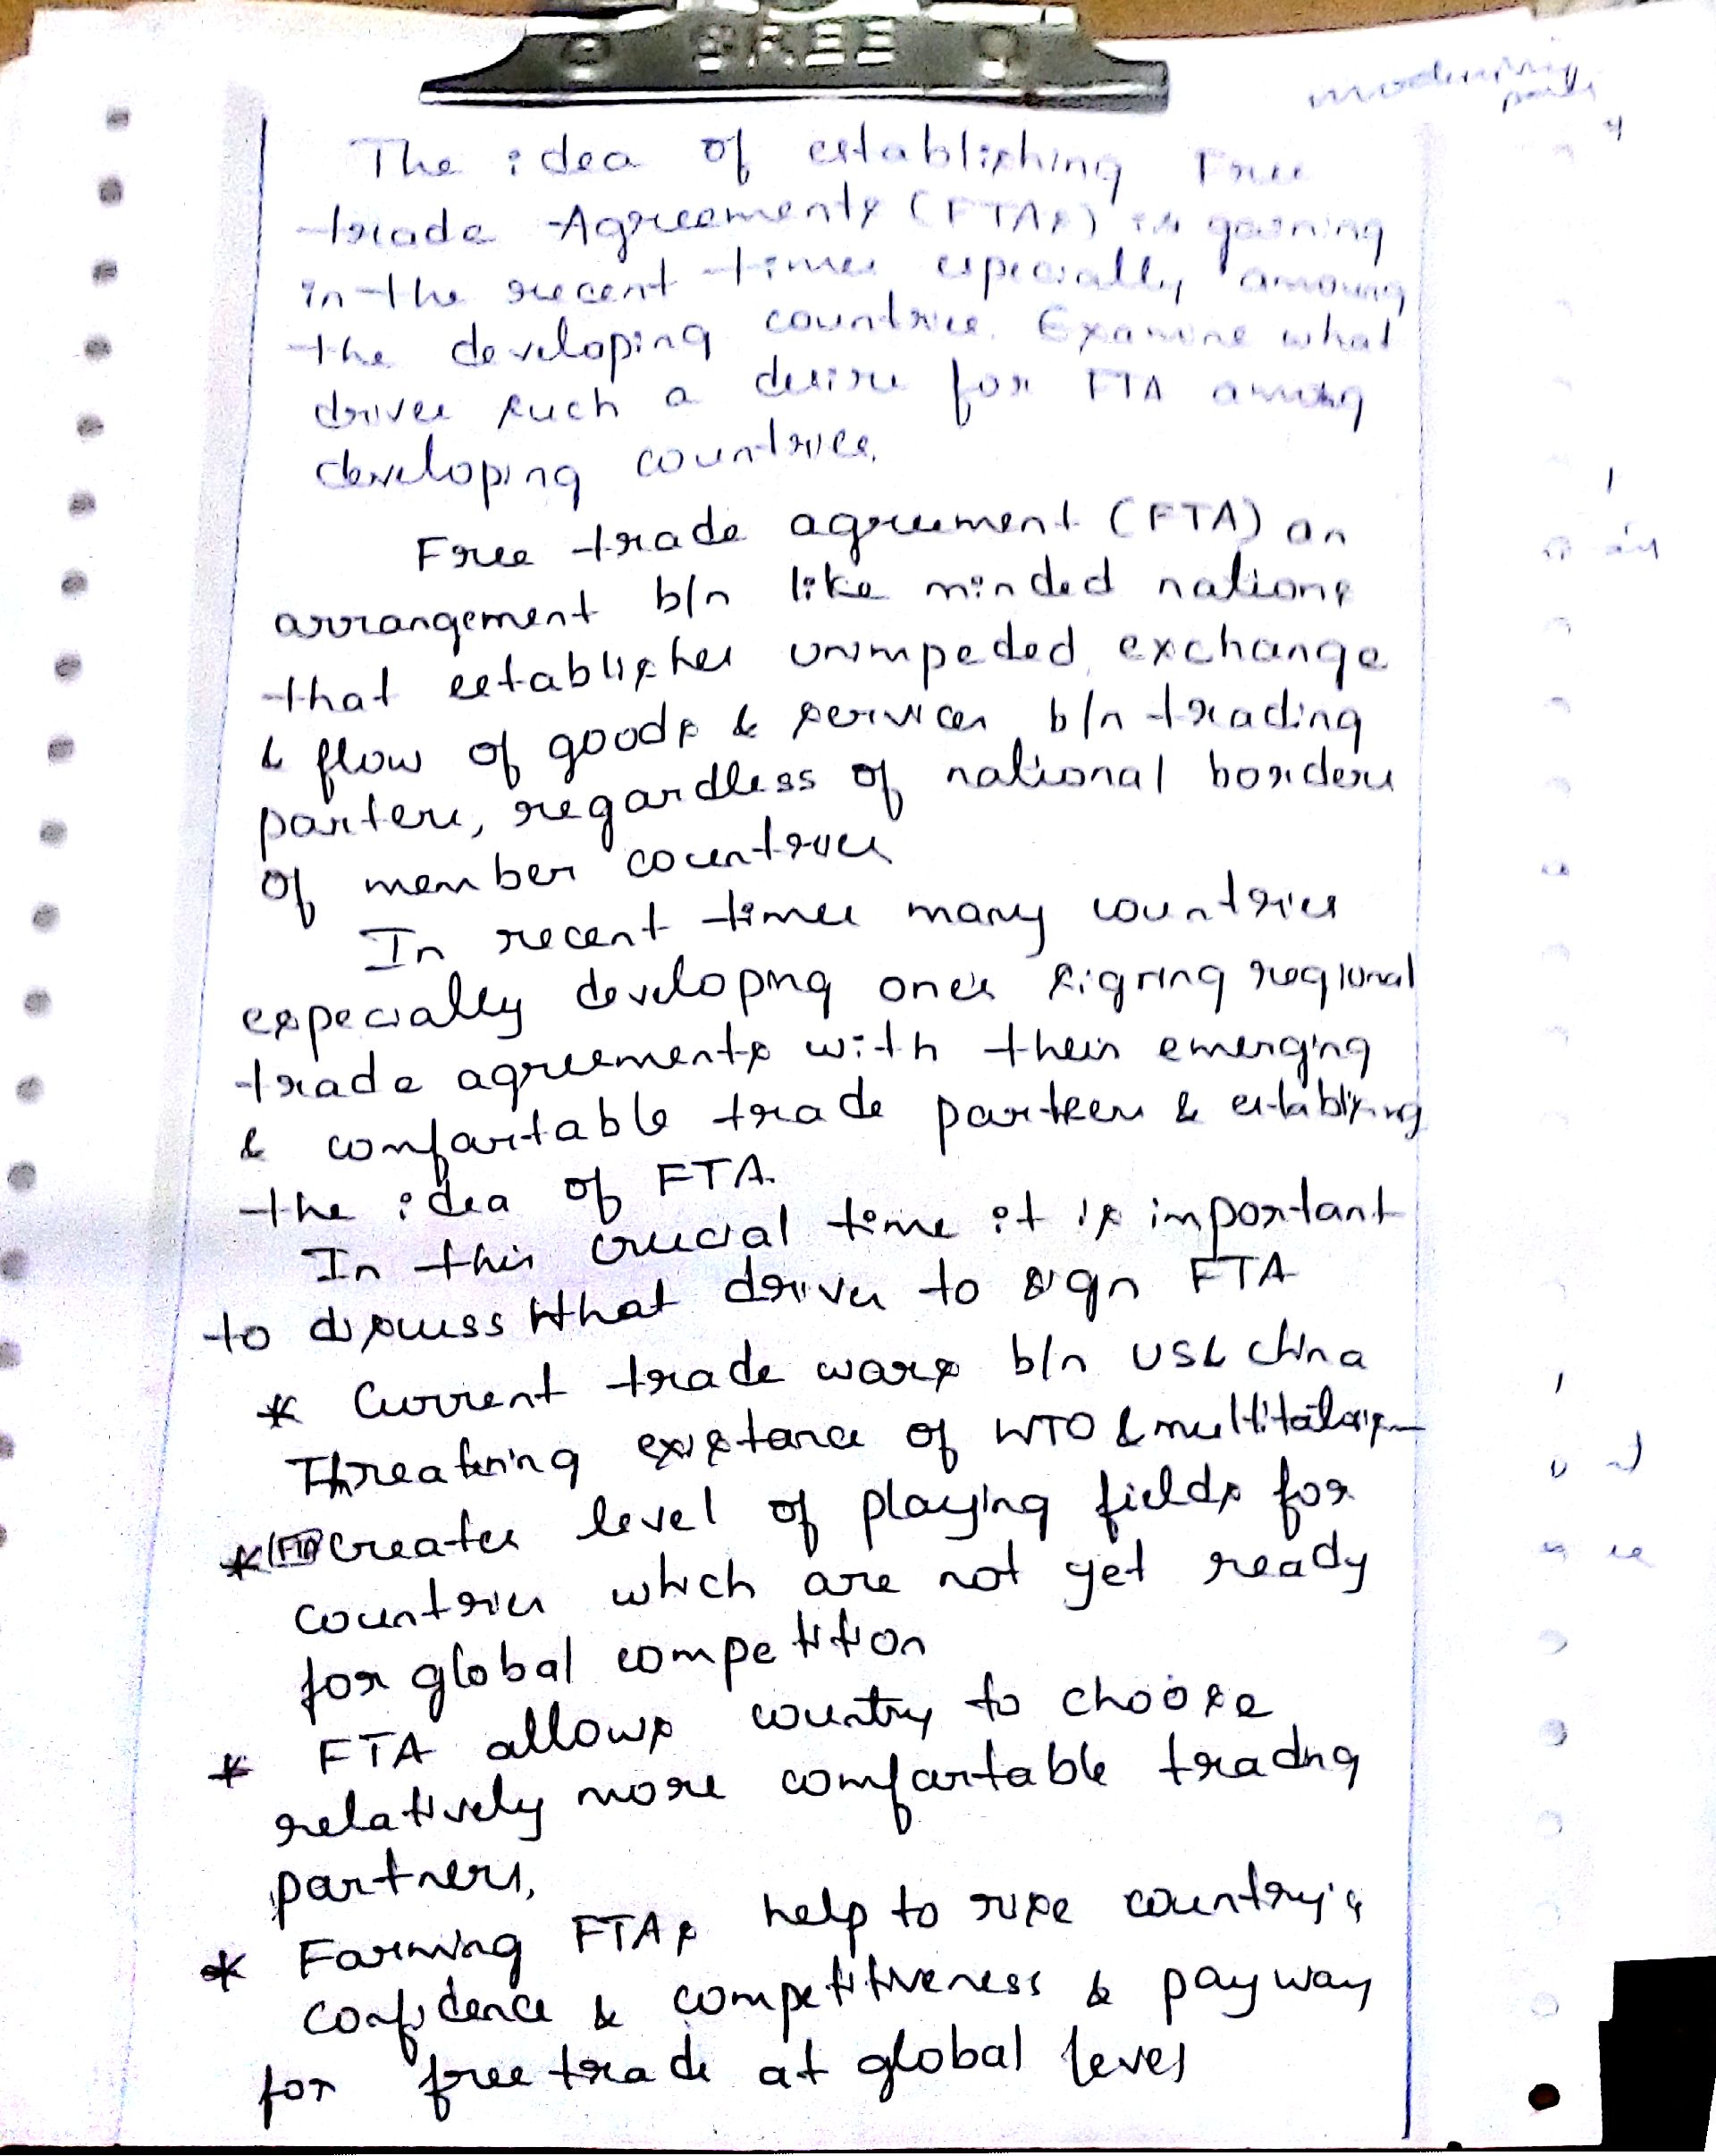 The idea of establishing Free
trade Agreements (FTAs) is gaining
in the recent times especially among
the developing countries. Examine what
drives such a desire for FTA among
developing countries.
Free trade agreement (FTA) an
arrangement b/n like minded nations
that establishes unimpeded exchange
& flow of goods & services b/n trading
parters, regardless of national borders
of member countries
In recent times many countries
especially developing ones signing regional
trade agreements with their emerging
& comfortable trade parteers & establising
the idea of FTA.
In this crucial time it is important
to discuss What drives to sign FTA
* Current trade wars b/n US & China
Threatening existance of WTO &
* (FTA) creates level of playing fields for
countries which are not yet ready
for global competition
* FTA allows country to choose
relatively more comfortable trading
partners,
* Forming FTAs help to rise country's
confidence & competitiveness & pay way
for free trade at global level